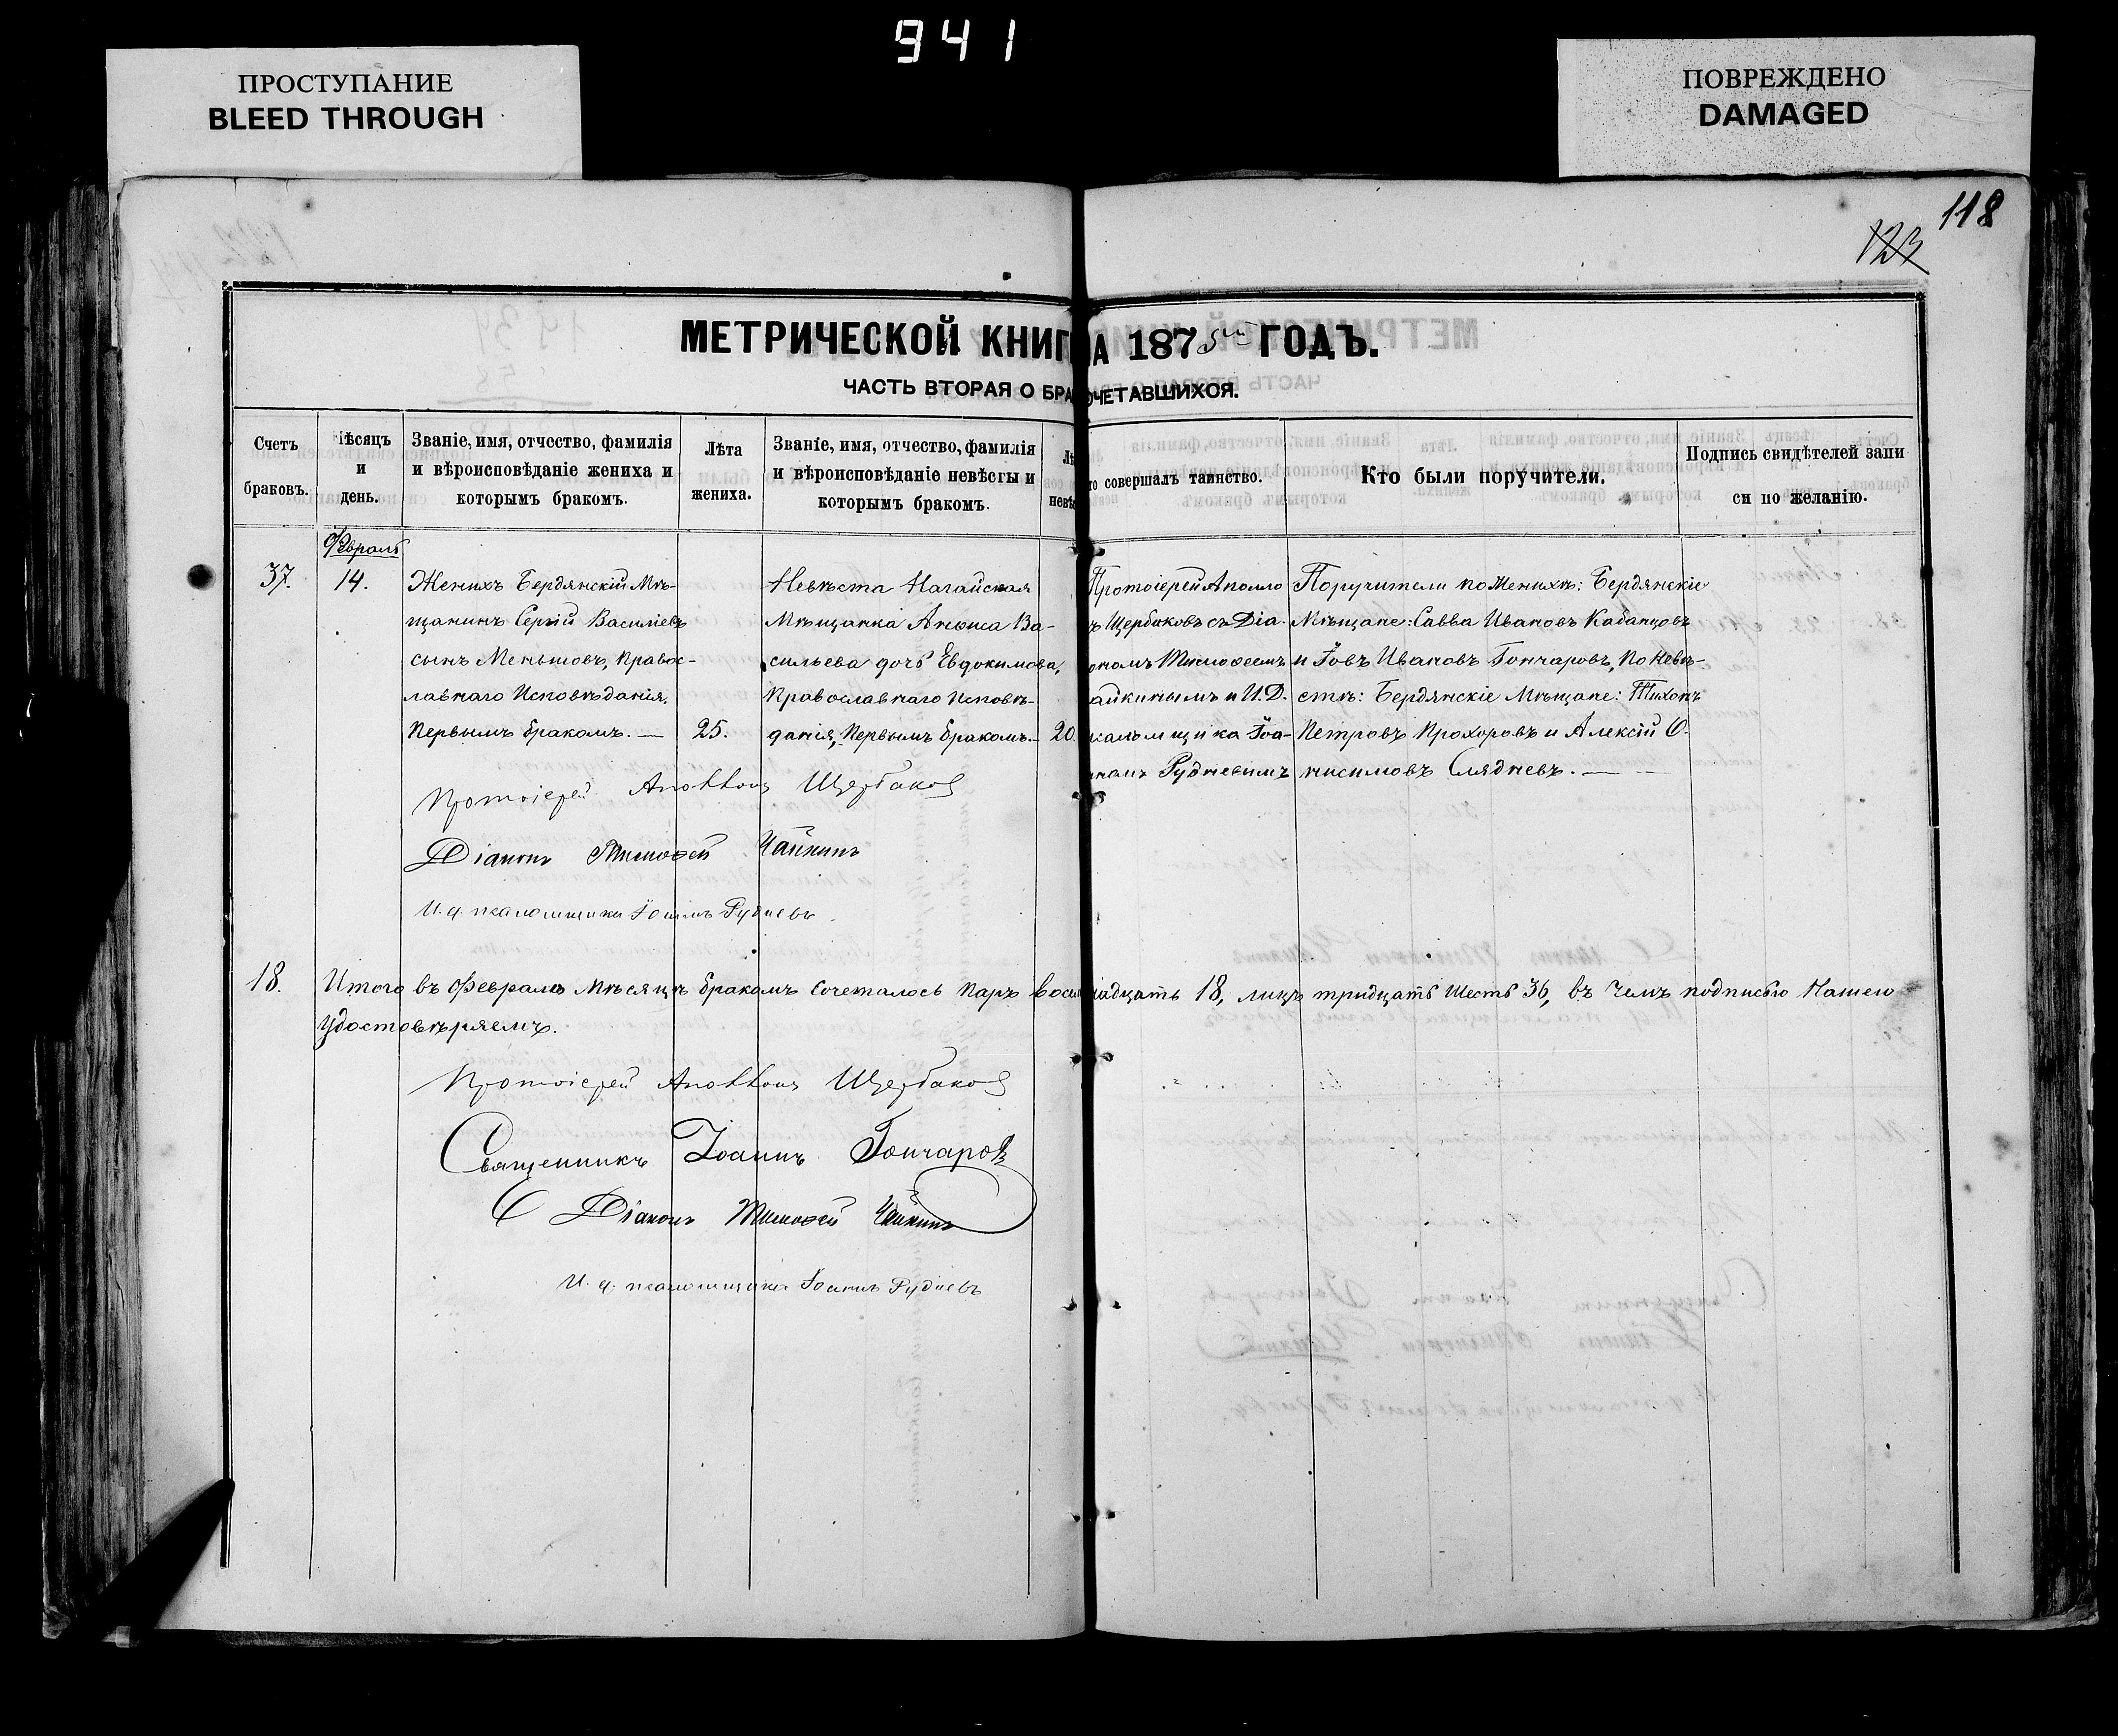 941
ПРОСТУПАНИЕ
BLEED THROUGH
ПОВРЕЖДЕНО
DAMAGED
118
123
МЕТРИЧЕСКОЙ КНИГ А 1875 ГОДЪ.
ЧАСТЬ ВТОРАЯ О БРА ОЧЕТАВШИХСЯ.
Счетъ
браковъ.
Мѣсяцъ
и
день.
Званіе, имя, отчество, фамилія
и вѣроисповѣданіе жениха и
которымъ бракомъ.
Лѣта
жениха.
Званіе, имя, отчество, фамилія
и вѣроисповѣданіе невѣсты и
которымъ бракомъ.
Лѣ
невѣ
то совершалъ таинство.
Кто были поручители.
Подпись свидѣтелей запи
си по желанію.
Февраль
37.
14.
Женихъ Бердянскій Мѣ-
щанинъ Сергій Василіевъ
сынъ Меньшовъ, Правос-
лавнаго Исповѣданія,
Первымъ бракомъ. —
25.
Невѣста Нагайская
Мѣщанка Анѳиса Ва-
сильева дочь Евдокимова,
Православнаго Исповѣ-
данія, Первымъ бракомъ. —
20.
Протоіерей Аполло
ъ Щербаковъ съ Діа-
ономъ Тимоѳеемъ
айкинымъ и И.Д.
саломщика Іоа-
номъ Рудневымъ
Поручители по Женихѣ: Бердянскіе
Мѣщане: Савва Ивановъ Кабанцовъ
и Іовъ Ивановъ Гончаровъ, по Невѣ-
стѣ: Бердянскіе Мѣщане: Тихонъ
Петровъ Прохоровъ и Алексій О-
нисимовъ Слядневъ. —
Протоіерей Аполлонъ Щербаковъ
Діаконъ Тимоѳей Чайкинъ
И. д. псаломщика Іоаннъ Рудневъ
18.
Итого въ Февралѣ Мѣсяцѣ бракомъ сочеталось паръ восем надцать 18, лицъ тридцать шесть 36, въ чемъ подписью нашею
удостовѣряемъ.
Протоіерей Аполлонъ Щербаковъ
Священникъ Іоаннъ Гончаровъ
Діаконъ Тимоѳей Чайкинъ
И. д. псаломщика Іоаннъ Рудневъ